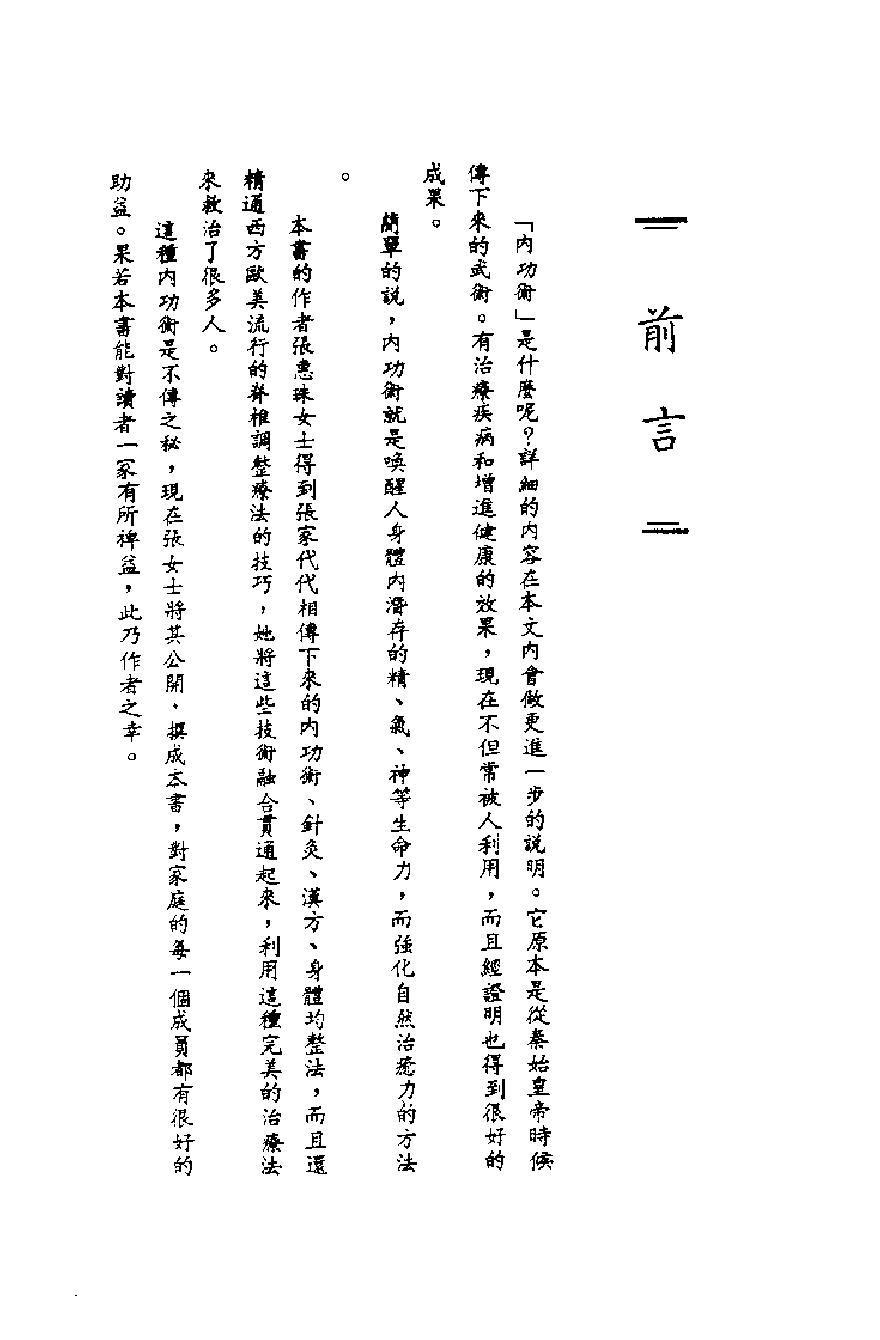 前言
「內功術」是什麼呢?詳細的內容在本文內會做更進一步的說明。它原本是從秦始皇帝時候
傳下來的武術。有治療疾病和增進健康的效果,現在不但常被人利用,而且經證明也得到很好的
成果。
簡單的說,內功術就是喚醒人身體內潛存的精、氣、神等生命力,而強化自然治癒力的方法
。
本書的作者張惠珠女士得到張家代代相傳下來的內功術、針灸、漢方、身體均整法,而且還
精通西方歐美流行的脊椎調整療法的技巧,她將這些技術融合貫通起來,利用這種完美的治療法
來救治了很多人。
這種內功術是不傳之秘,現在張女士將其公開、撰成本書,對家庭的每一個成員都有很好的
助益。果若本書能對讀者一家有所裨益,此乃作者之幸。